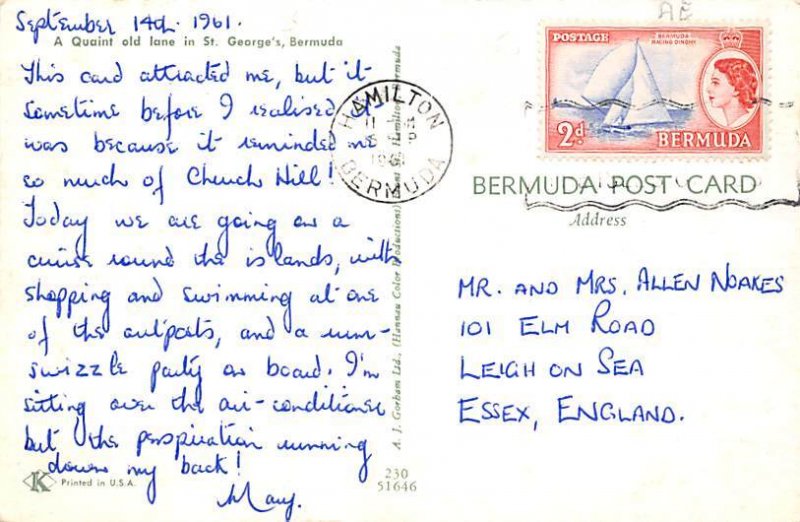 September 14th. 1961.
A Quaint old lane in St. George's, Bermuda
This card attracted me, but it
sometime before I realised it
was because it reminded me
so much of Church Hill!
Today we are going on a
cruise round the islands, with
shopping and swimming at one
of the outposts, and a rum-
swizzle party on board. I'm
sitting over the air-conditioner
but the perspiration running
down my back!
Mary.
K
Printed in U.S.A.
230
51646
A. J. Gorham Ltd., (Hannau Color Productions) Hamilton, Bermuda
HAMILTON
BERMUDA
AE
POSTAGE
BERMUDA
RACING DINGHY
2d.
BERMUDA
BERMUDA POST CARD
Address
MR. AND MRS. ALLEN NOAKES
101 ELM ROAD
LEIGH ON SEA
ESSEX, ENGLAND.